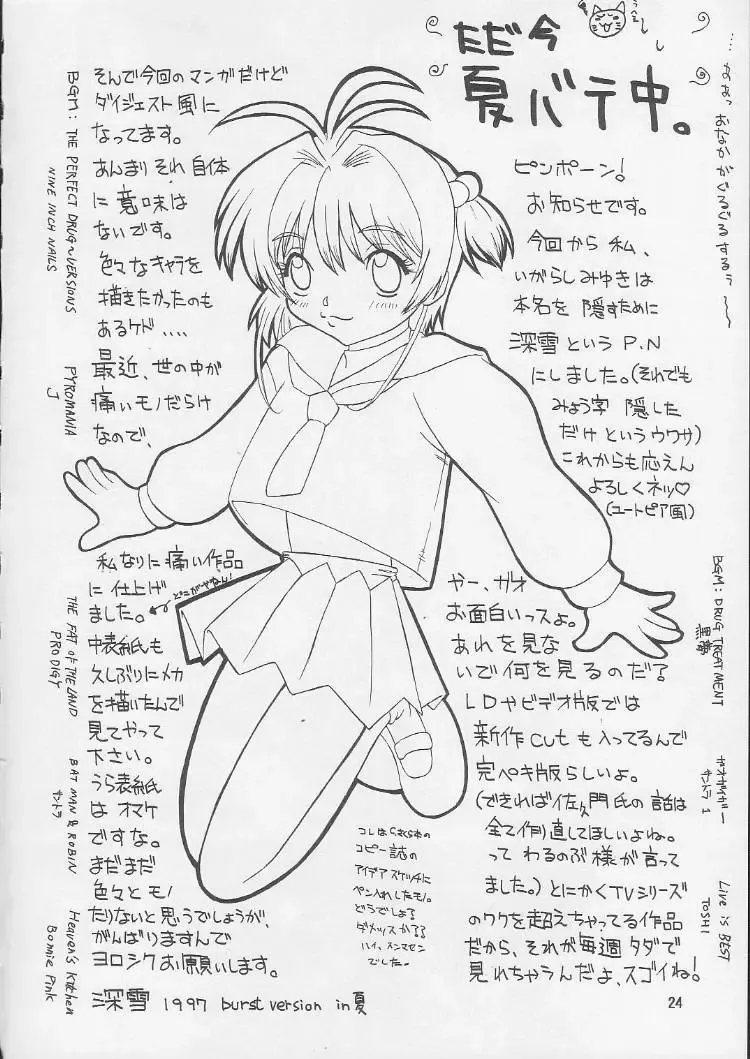 ただ今
夏バテ中。
うへえ〜し
…なぁっ おなかがぐるぐるするぅ〜
そんで今回のマンガだけど
ダイジェスト風に
なってます。
あんまりそれ自体
に意味は
ないです。
色々なキャラを
描きたかったのも
あるケド....
最近、世の中が
痛いモノだらけ
なので、
私なりに痛い作品
に仕上げ
ました。
どこがやねん!
中表紙も
久しぶりにメカ
を描いたんで
見てやって
下さい。
うら表紙
は オマケ
ですな。
まだまだ
色々とモノ
たりないと思うでしょうが、
がんばりますんで
ヨロシクお願いします。
深雪 1997 burst version in夏
ピンポーン!
お知らせです。
今回から 私、
いがらしみゆきは
本名を 隠すために
深雪という P.N
にしました。(それでも
みょう字 隠した
だけ というウワサ)
これからも応えん
よろしくネッ♡
(ユートピア風)
やー、ガオ
お面白いっスよ。
あれを見な
いで何を見るのだ?
LDやビデオ版では
新作cutも入ってるんで
完ペキ版らしいよ。
(できれば佐久門氏の話は
全て作り直してほしいよね。
って わるのぶ様が言って
ました。)とにかくTVシリーズ
のワクを超えちゃってる作品
だから、それが毎週タダで
見れちゃうんだよ、スゴイね!
コレは
コピー誌の
アイデアスケッチに
ペン入れしたモノ。
どうでしょる
ダメッスかる?
ハイ、スンマセン
でした。
BGM: THE PERFECT DRUG~VERSIONS
NINE INCH NAILS
PYROMANIA
J
THE FAT OF THE LAND
PRODIGY
BATMAN & ROBIN
サントラ
Heaven's Kitchen
Bonnie Pink
BGM: DRUG TREATMENT
黒夢
ガオガイガー
サントラ 1
Live is BEST
TOSHI
24